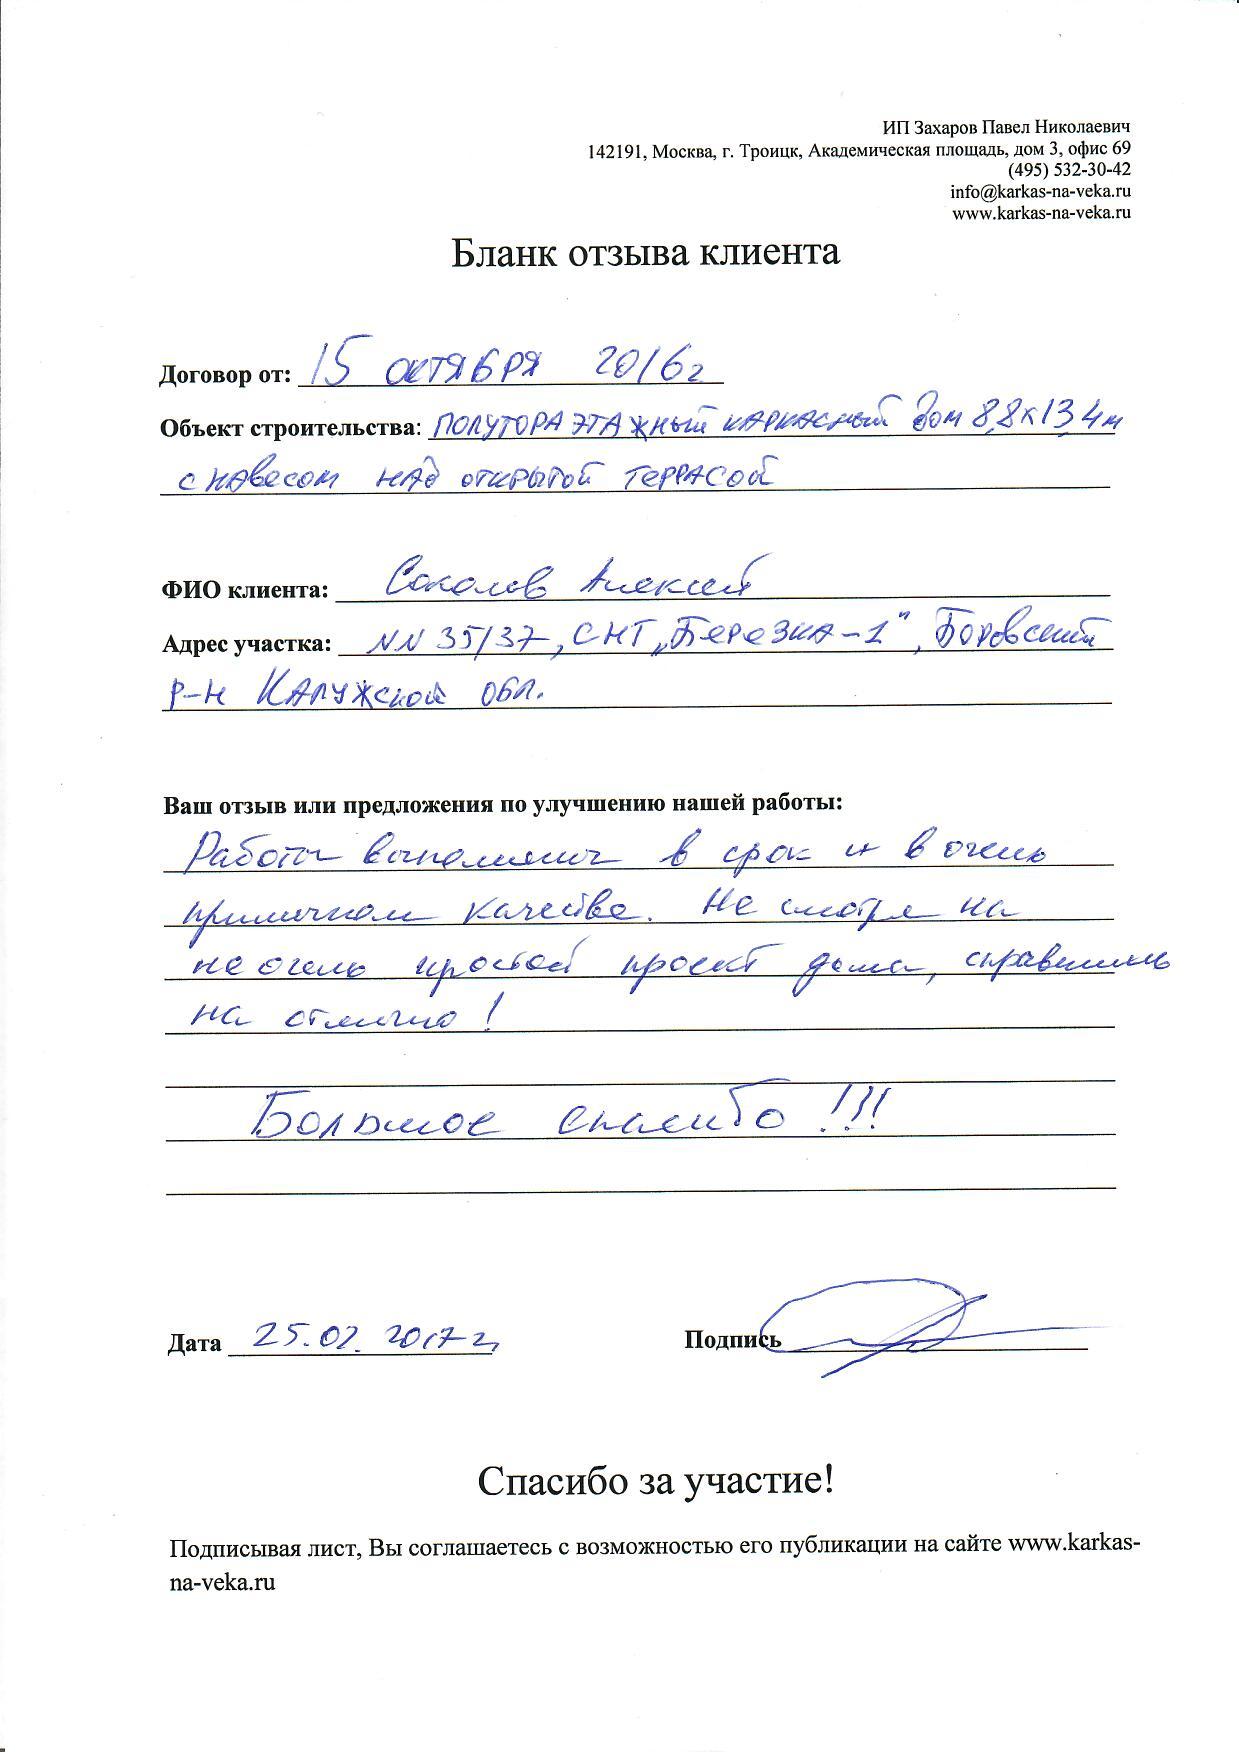 ИП Захаров Павел Николаевич
142191, Москва, г. Троицк, Академическая площадь, дом 3, офис 69
(495) 532-30-42
info@karkas-na-veka.ru
www.karkas-na-veka.ru
Бланк отзыва клиента
Договор от: 15 октября 2016г
Объект строительства: полутораэтажный каркасный дом 8,8х13,4м
с навесом над открытой террасой
ФИО клиента: Соколов Алексей
Адрес участка: NN 35/37, СНТ „Березка-1", Боровский
р-н Калужской обл.
Ваш отзыв или предложения по улучшению нашей работы:
Работы выполнены в срок и в очень
приличном качестве. Не смотря на
не очень простой проект дома, справились
на отлично!
Большое спасибо!!!
Дата 25.02.2017г.
Подпись
Спасибо за участие!
Подписывая лист, Вы соглашаетесь с возможностью его публикации на сайте www.karkas-
na-veka.ru